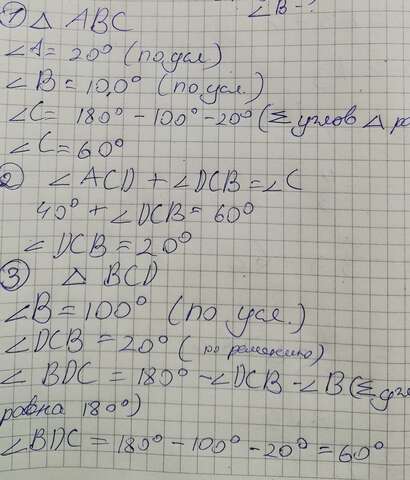 ∠B - ?
1) △ ABC
∠A = 20° (по усл.)
∠B = 100° (по усл.)
∠C = 180° - 100° - 20° (Σ углов △ ра
∠C = 60°
2 ∠ACD + ∠DCB = ∠C
40° + ∠DCB = 60°
∠DCB = 20°
3 △ BCD
∠B = 100° (по усл.)
∠DCB = 20° (по решению)
∠BDC = 180° - ∠DCB - ∠B (Σ угл
равна 180°)
∠BDC = 180° - 100° - 20° = 60°